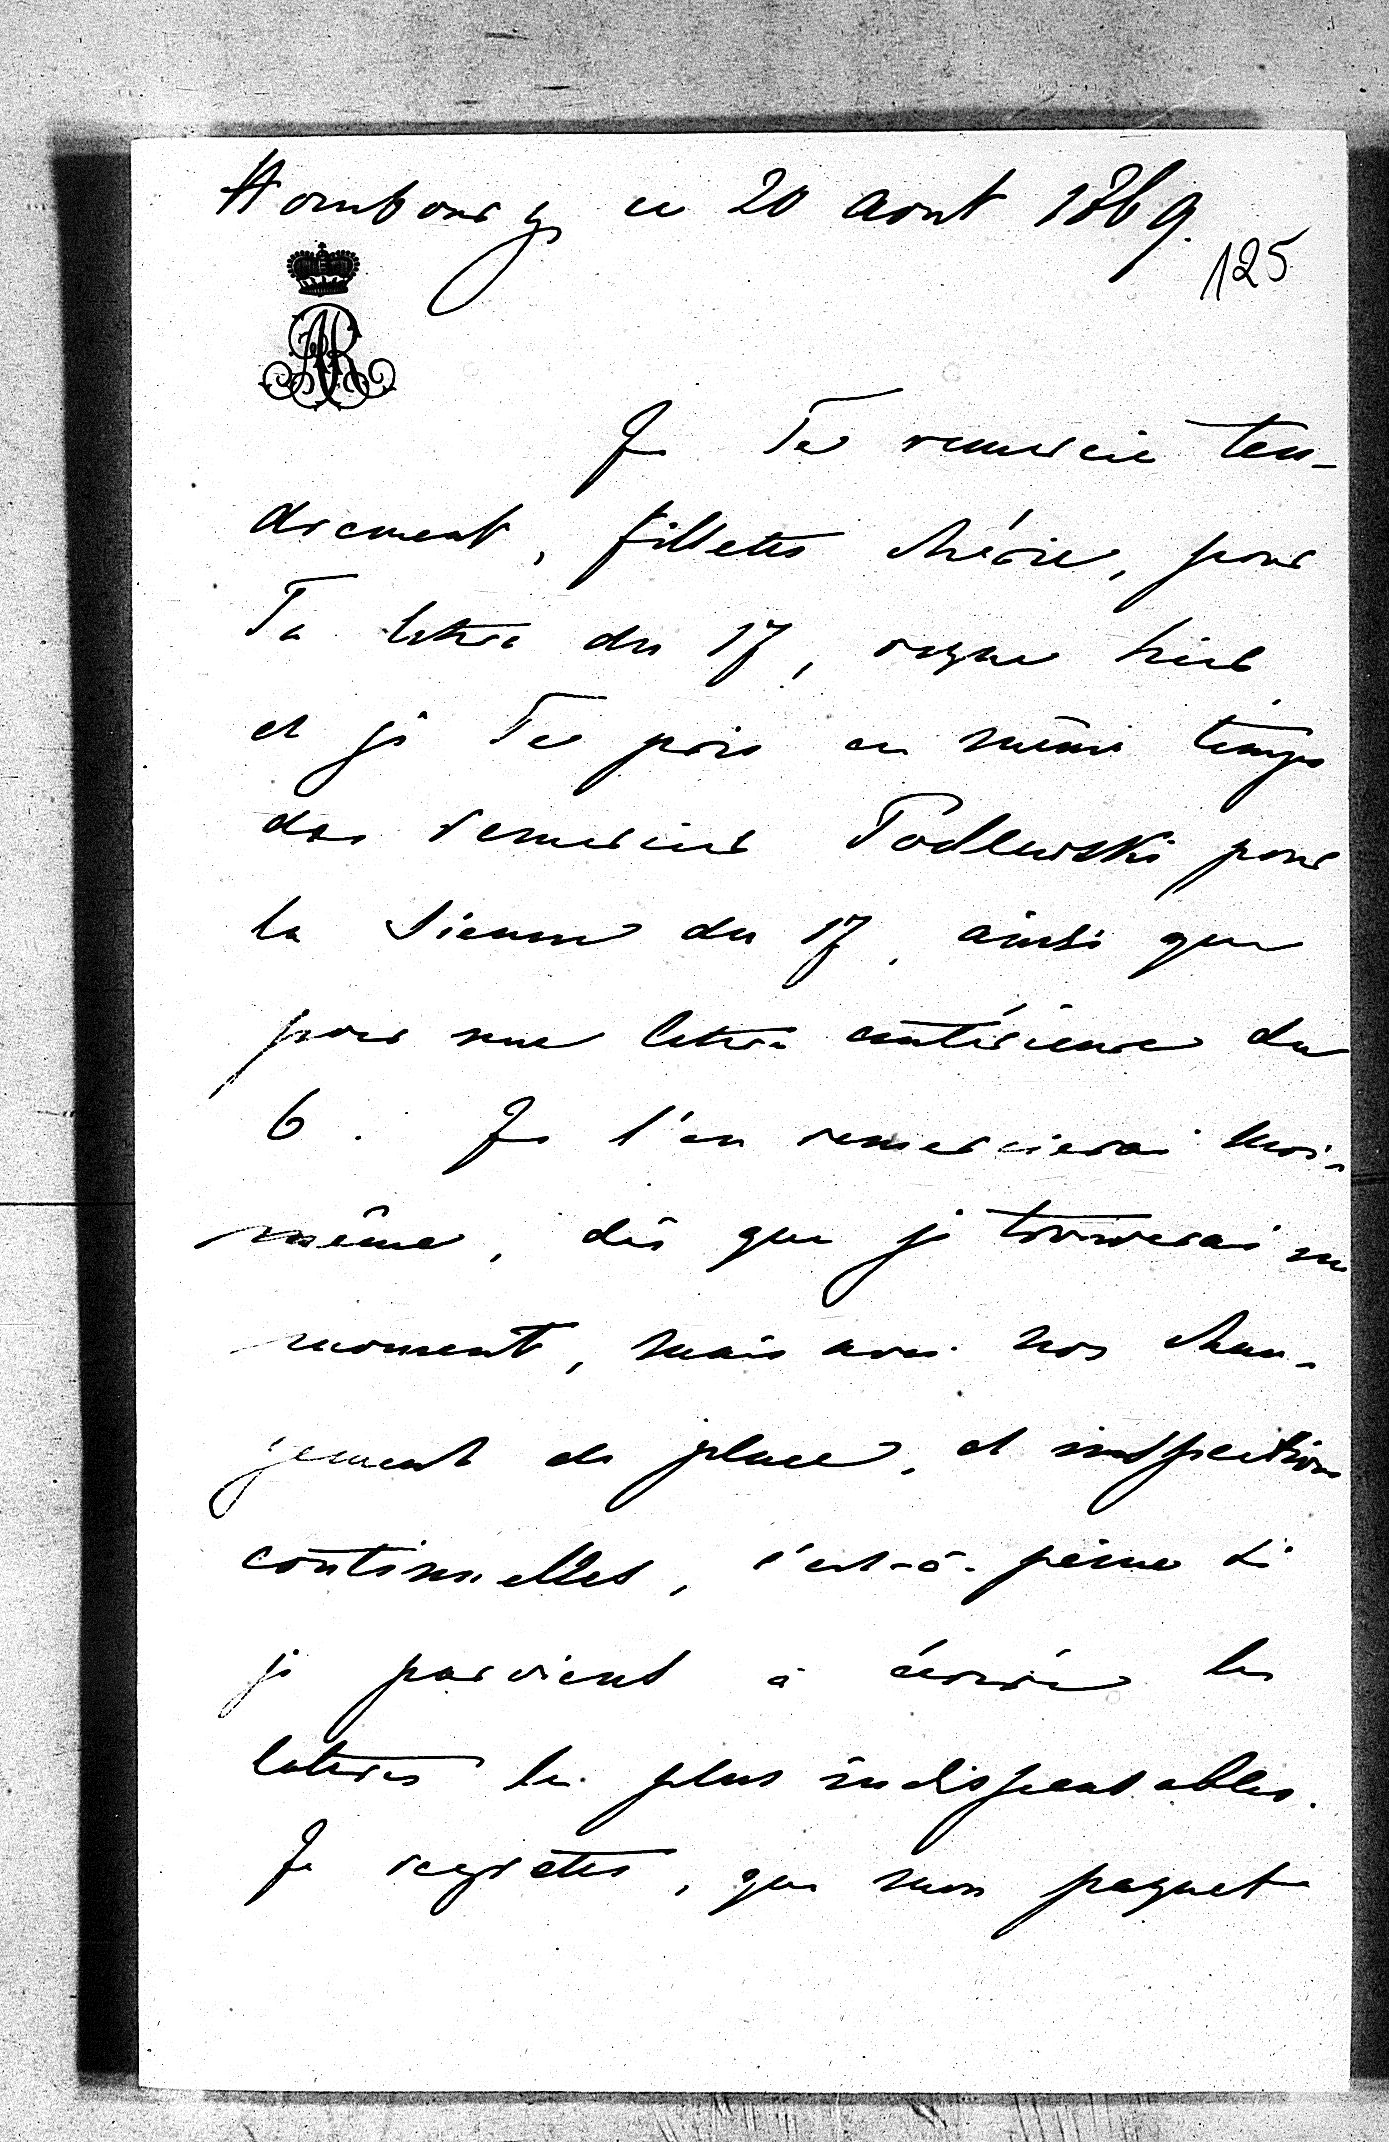 Hombourg ce 20 aout 1869.
125
AR
Je Te remercie ten-
drement, fillette chérie, pour
Ta lettre du 17, reçue hier
et je Te prie en même temps
de remercier Podlewski pour
la sienne du 17, ainsi que
pour une lettre antérieure du
6. Je l'en remercierai moi-
même, dès que je trouverai un
moment, mais avec nos chan-
gement de place, et inspections
continuelles, c'est-à-peine si
je parvient à écrire les
lettres les plus indispensables.
Je regrette, que mon paquet